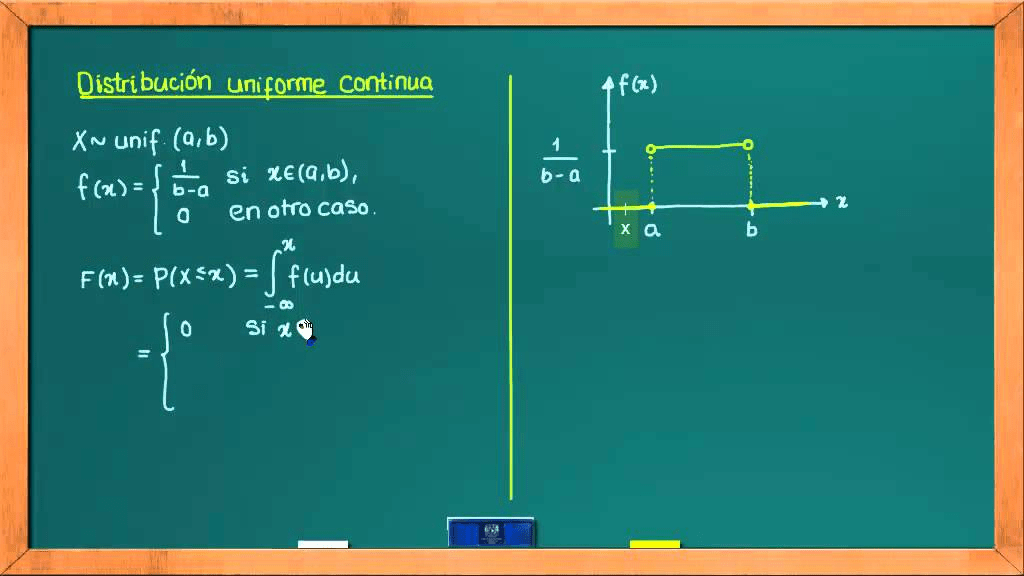 Distribución uniforme continua
X ~ unif. (a,b)
f(x) = { 1/(b-a) si x∈(a,b),
0 en otro caso.
F(x) = P(X ≤ x) = ∫_{-∞}^{x} f(u)du
= { 0 si x
f(x)
1/(b-a)
x
x a b